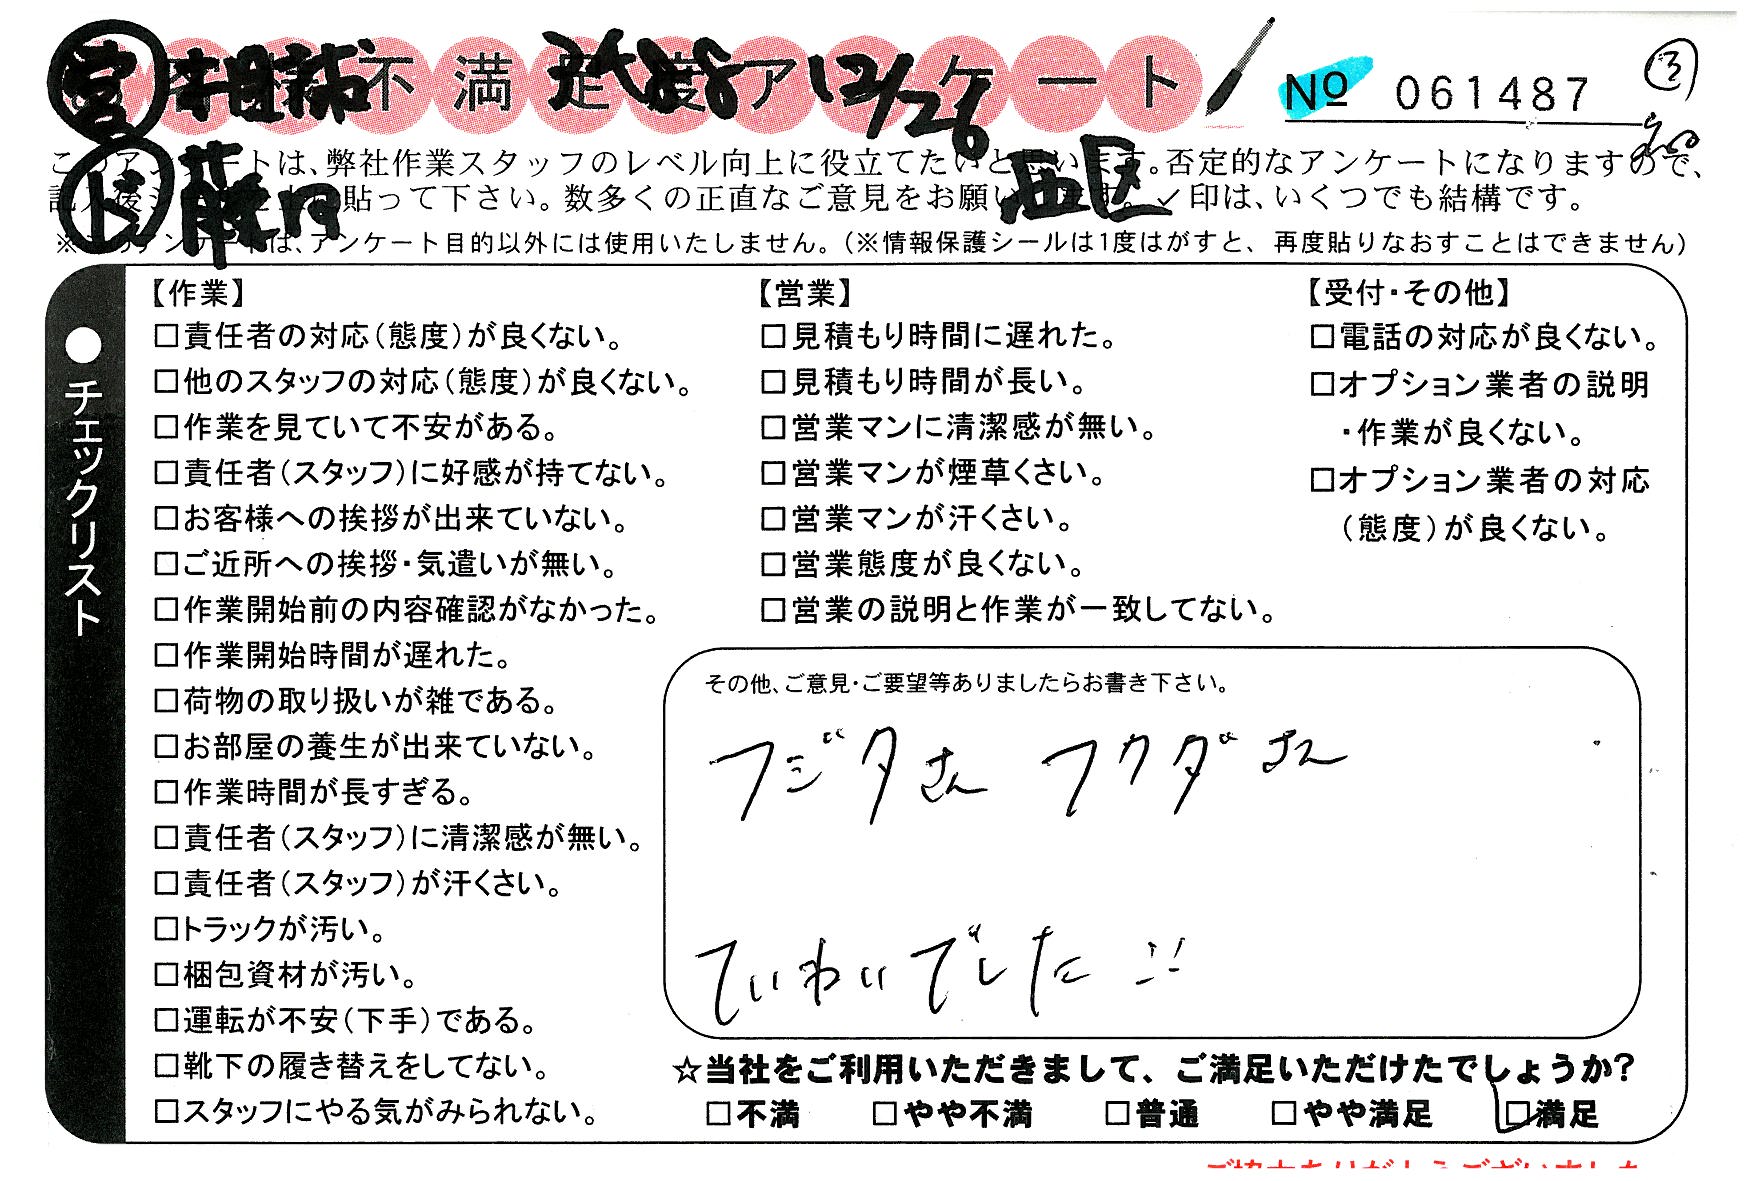 不満足度アンケート
12/26
No 061487
③
西区
このアンケートは、弊社作業スタッフのレベル向上に役立てたいと思います。否定的なアンケートになりますので、
記入後シールを上に貼って下さい。数多くの正直なご意見をお願いします。✓印は、いくつでも結構です。
※このアンケートは、アンケート目的以外には使用いたしません。（※情報保護シールは1度はがすと、再度貼りなおすことはできません）
●チェックリスト
【作業】
□責任者の対応（態度）が良くない。
□他のスタッフの対応（態度）が良くない。
□作業を見ていて不安がある。
□責任者（スタッフ）に好感が持てない。
□お客様への挨拶が出来ていない。
□ご近所への挨拶・気遣いが無い。
□作業開始前の内容確認がなかった。
□作業開始時間が遅れた。
□荷物の取り扱いが雑である。
□お部屋の養生が出来ていない。
□作業時間が長すぎる。
□責任者（スタッフ）に清潔感が無い。
□責任者（スタッフ）が汗くさい。
□トラックが汚い。
□梱包資材が汚い。
□運転が不安（下手）である。
□靴下の履き替えをしてない。
□スタッフにやる気がみられない。
【営業】
□見積もり時間に遅れた。
□見積もり時間が長い。
□営業マンに清潔感が無い。
□営業マンが煙草くさい。
□営業マンが汗くさい。
□営業態度が良くない。
□営業の説明と作業が一致してない。
【受付・その他】
□電話の対応が良くない。
□オプション業者の説明
・作業が良くない。
□オプション業者の対応
（態度）が良くない。
その他、ご意見・ご要望等ありましたらお書き下さい。
フジタさん フクダさん
ていねいでした
☆当社をご利用いただきまして、ご満足いただけたでしょうか？
□不満 □やや不満 □普通 □やや満足 ☑満足
ご協力ありがとうございました